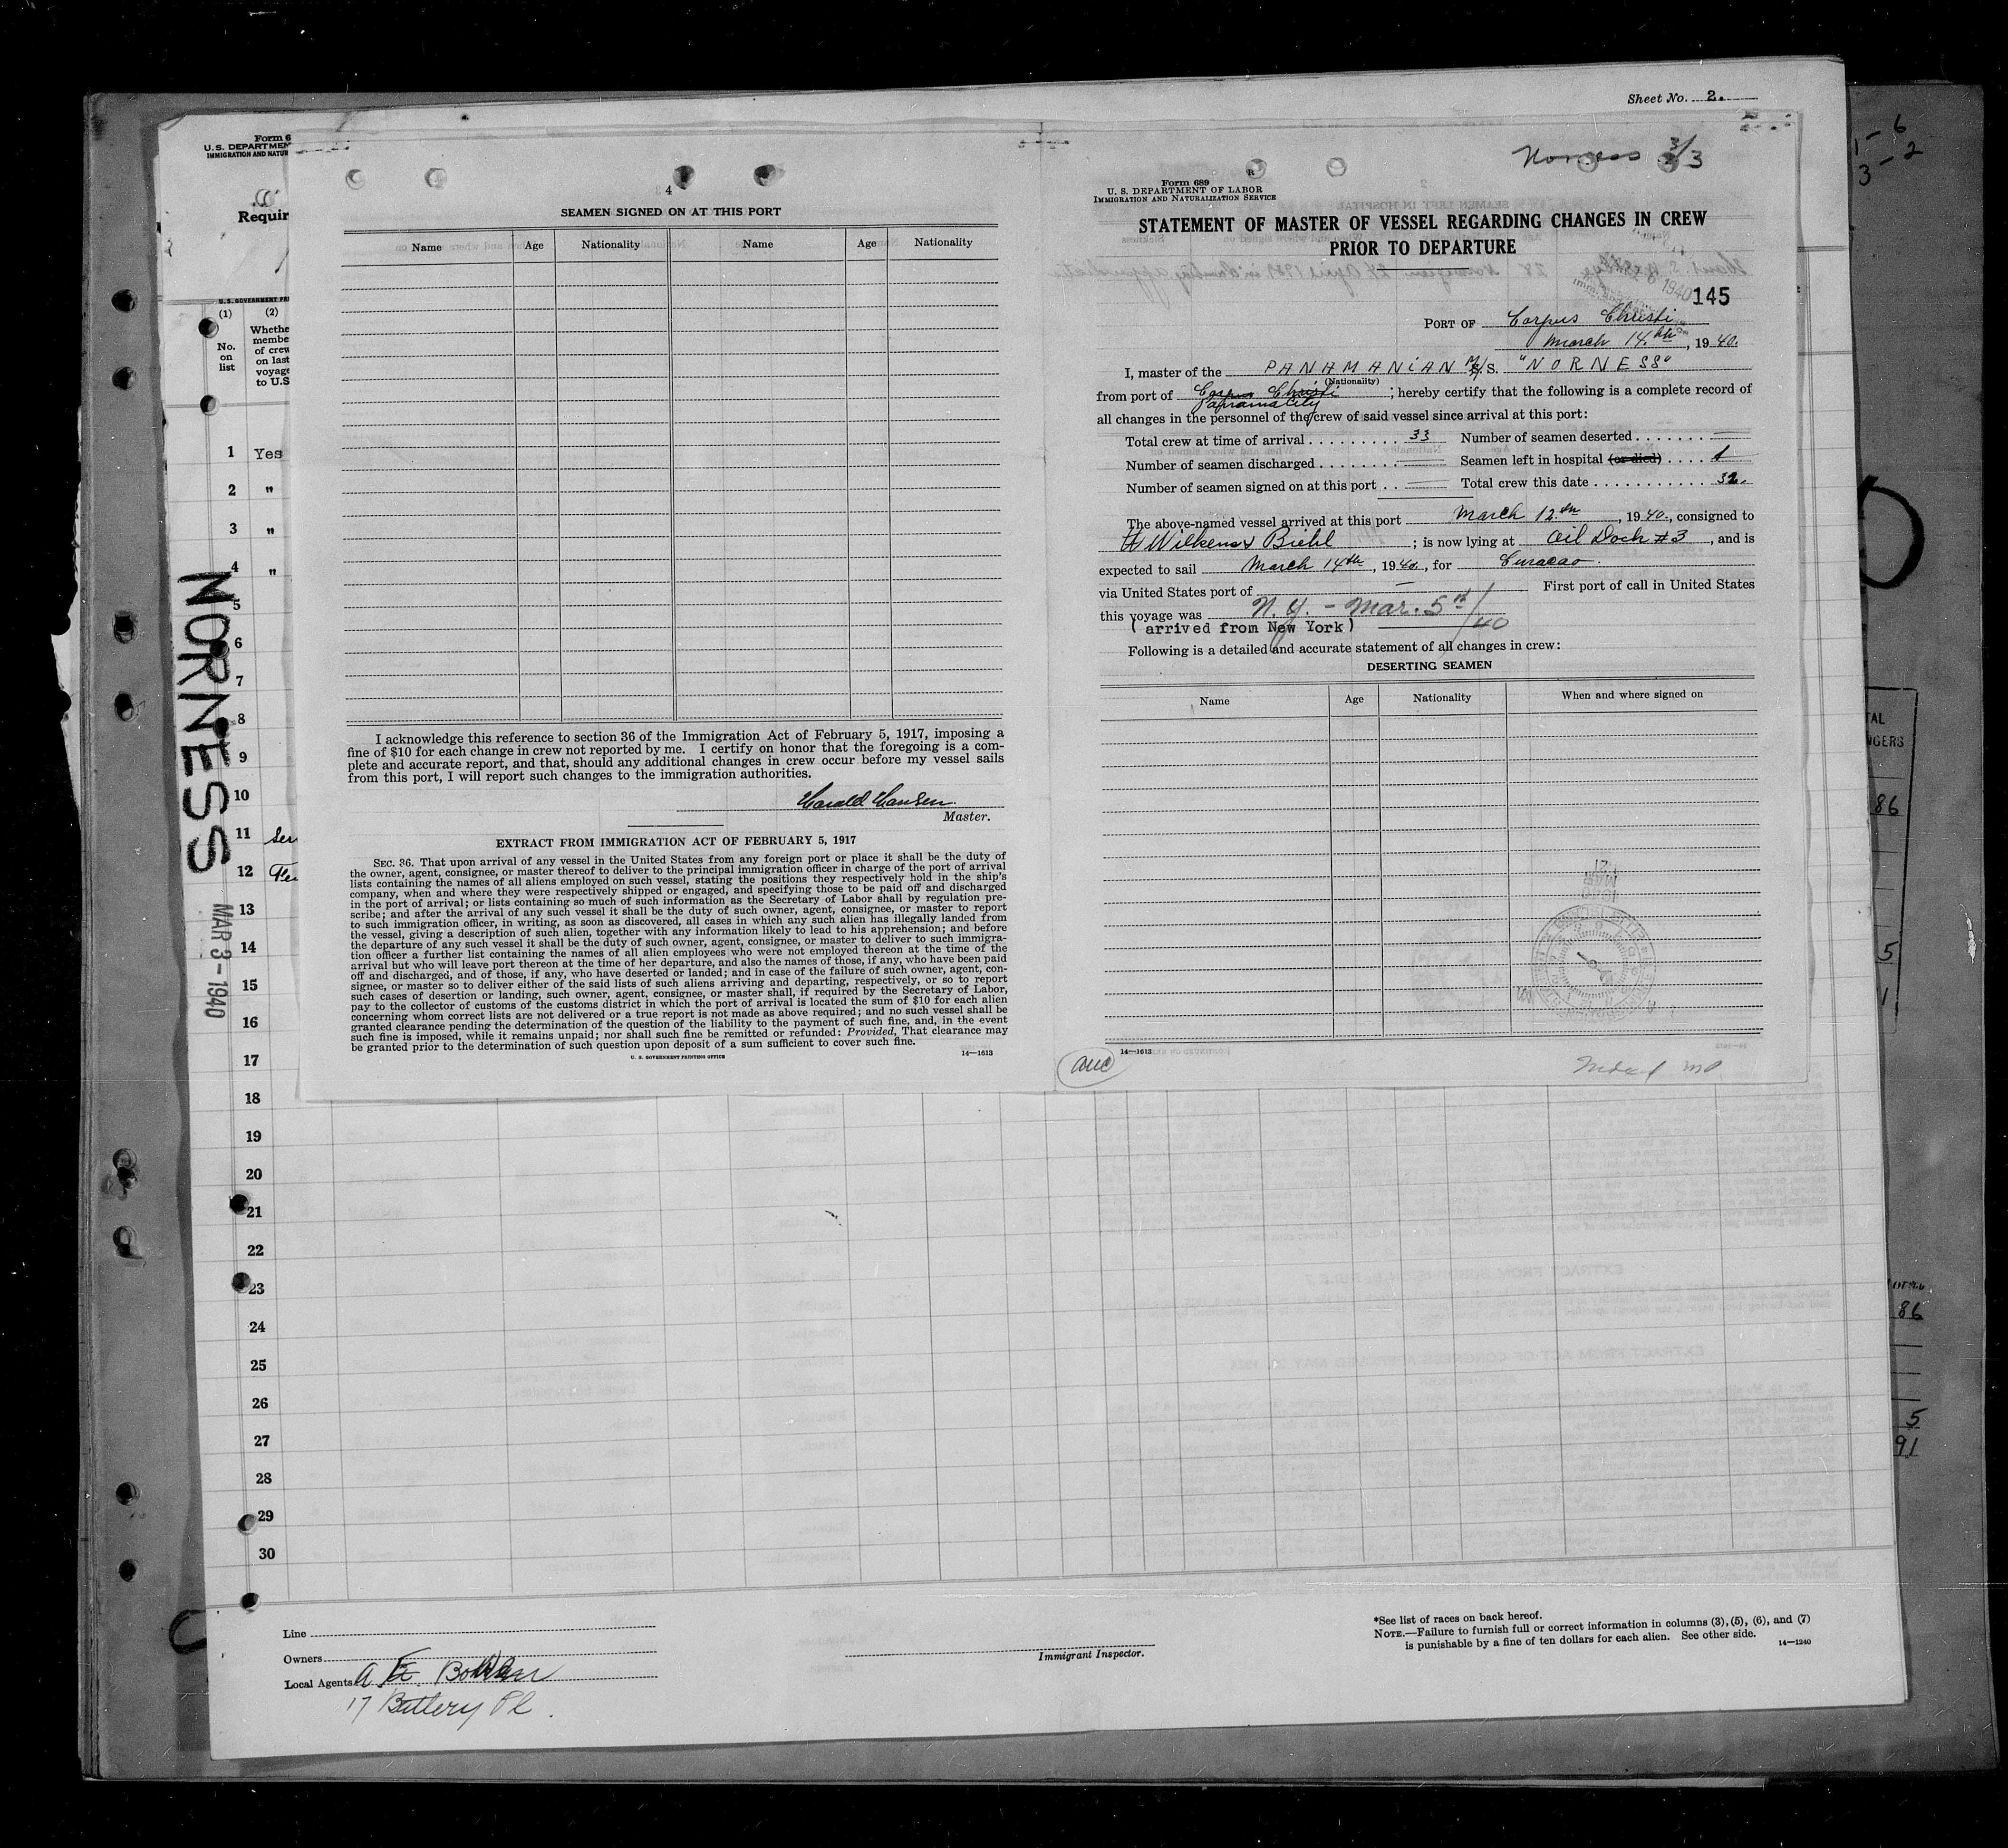 Sheet No. 2.
Form 6
U. S. DEPARTMEN
IMMIGRATION AND NATUR
Requir
U. S. GOVERNMENT PRI
(1)
(2)
No. on list
Whethe
membe
of crew
on last
voyage
to U.S
1 Yes
2 "
3 "
4 "
5
6
7
8
9
10
11
12
13
14
15
16
17
18
19
20
21
22
23
24
25
26
27
28
29
30
NORNESS
MAR 3-1940
4
SEAMEN SIGNED ON AT THIS PORT
Name Age Nationality Name Age Nationality
I acknowledge this reference to section 36 of the Immigration Act of February 5, 1917, imposing a
fine of $10 for each change in crew not reported by me. I certify on honor that the foregoing is a com-
plete and accurate report, and that, should any additional changes in crew occur before my vessel sails
from this port, I will report such changes to the immigration authorities.
Harald Hansen
Master.
EXTRACT FROM IMMIGRATION ACT OF FEBRUARY 5, 1917
SEC. 36. That upon arrival of any vessel in the United States from any foreign port or place it shall be the duty of
the owner, agent, consignee, or master thereof to deliver to the principal immigration officer in charge of the port of arrival
lists containing the names of all aliens employed on such vessel, stating the positions they respectively hold in the ship's
company, when and where they were respectively shipped or engaged, and specifying those to be paid off and discharged
in the port of arrival; or lists containing so much of such information as the Secretary of Labor shall by regulation pre-
scribe; and after the arrival of any such vessel it shall be the duty of such owner, agent, consignee, or master to report
to such immigration officer, in writing, as soon as discovered, all cases in which any such alien has illegally landed from
the vessel, giving a description of such alien, together with any information likely to lead to his apprehension; and before
the departure of any such vessel it shall be the duty of such owner, agent, consignee, or master to deliver to such immigra-
tion officer a further list containing the names of all alien employees who were not employed thereon at the time of the
arrival but who will leave port thereon at the time of her departure, and also the names of those, if any, who have been paid
off and discharged, and of those, if any, who have deserted or landed; and in case of the failure of such owner, agent, con-
signee, or master so to deliver either of the said lists of such aliens arriving and departing, respectively, or so to report
such cases of desertion or landing, such owner, agent, consignee, or master shall, if required by the Secretary of Labor,
pay to the collector of customs of the customs district in which the port of arrival is located the sum of $10 for each alien
concerning whom correct lists are not delivered or a true report is not made as above required; and no such vessel shall be
granted clearance pending the determination of the question of the liability to the payment of such fine, and, in the event
such fine is imposed, while it remains unpaid; nor shall such fine be remitted or refunded: Provided, That clearance may
be granted prior to the determination of such question upon deposit of a sum sufficient to cover such fine.
U. S. GOVERNMENT PRINTING OFFICE
14—1613
Norness 3/3
Form 689
U. S. DEPARTMENT OF LABOR
IMMIGRATION AND NATURALIZATION SERVICE
STATEMENT OF MASTER OF VESSEL REGARDING CHANGES IN CREW
PRIOR TO DEPARTURE
145
PORT OF Corpus Christi
March 14.th, 1940.
I, master of the PANAMANIAN M/S. "NORNESS"
(Nationality)
from port of Corpus Christi; hereby certify that the following is a complete record of
Panama City
all changes in the personnel of the crew of said vessel since arrival at this port:
Total crew at time of arrival 33 Number of seamen deserted —
Number of seamen discharged — Seamen left in hospital (or died) 1
Number of seamen signed on at this port — Total crew this date 32.
The above-named vessel arrived at this port March 12th, 1940., consigned to
Wilkens & Biehl; is now lying at Oil Dock #3, and is
expected to sail March 14th, 1940, for Curacao.
via United States port of — First port of call in United States
this voyage was N.Y. - Mar. 5th/40
(arrived from New York)
Following is a detailed and accurate statement of all changes in crew:
DESERTING SEAMEN
Name Age Nationality When and where signed on
14—1613
Line
Owners
Local Agents
17 Battery Pl.
Immigrant Inspector.
*See list of races on back hereof.
NOTE.—Failure to furnish full or correct information in columns (3), (5), (6), and (7)
is punishable by a fine of ten dollars for each alien. See other side.
14—1240
1-6
3-2
TAL
NGERS
86
5
1
86
5
91